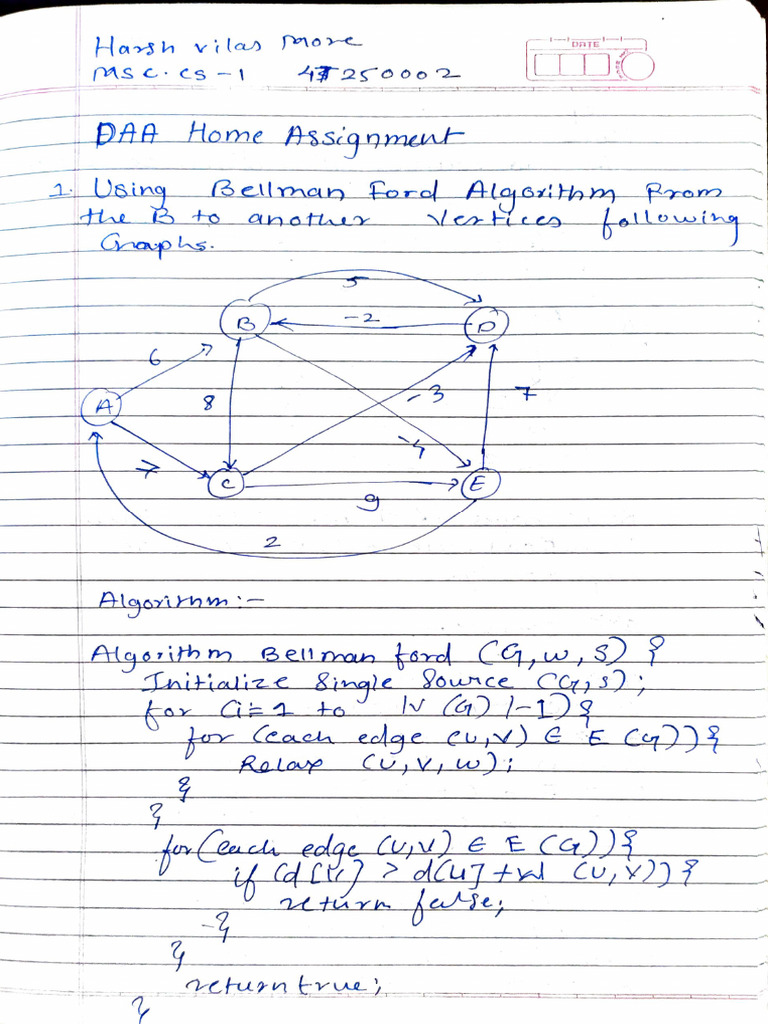 Harsh vilas more
DATE
MSC.CS-1 47250002
DAA Home Assignment
1. Using Bellman Ford Algorithm From
the B to another Vertices following
Graphs.
5
B -2 D
6
8 -3 7
A
-4
7
C E
9
2
Algorithm:-
Algorithm Bellman ford (G,w,s) {
Initialize Single Source (G,s);
for (i=1 to |v(G)|-1){
for (each edge (u,v) ∈ E(G)){
Relax (u,v,w);
}
}
for(each edge (u,v) ∈ E(G)){
if (d[v] > d[u]+w (u,v)){
return false;
}
}
return true;
}